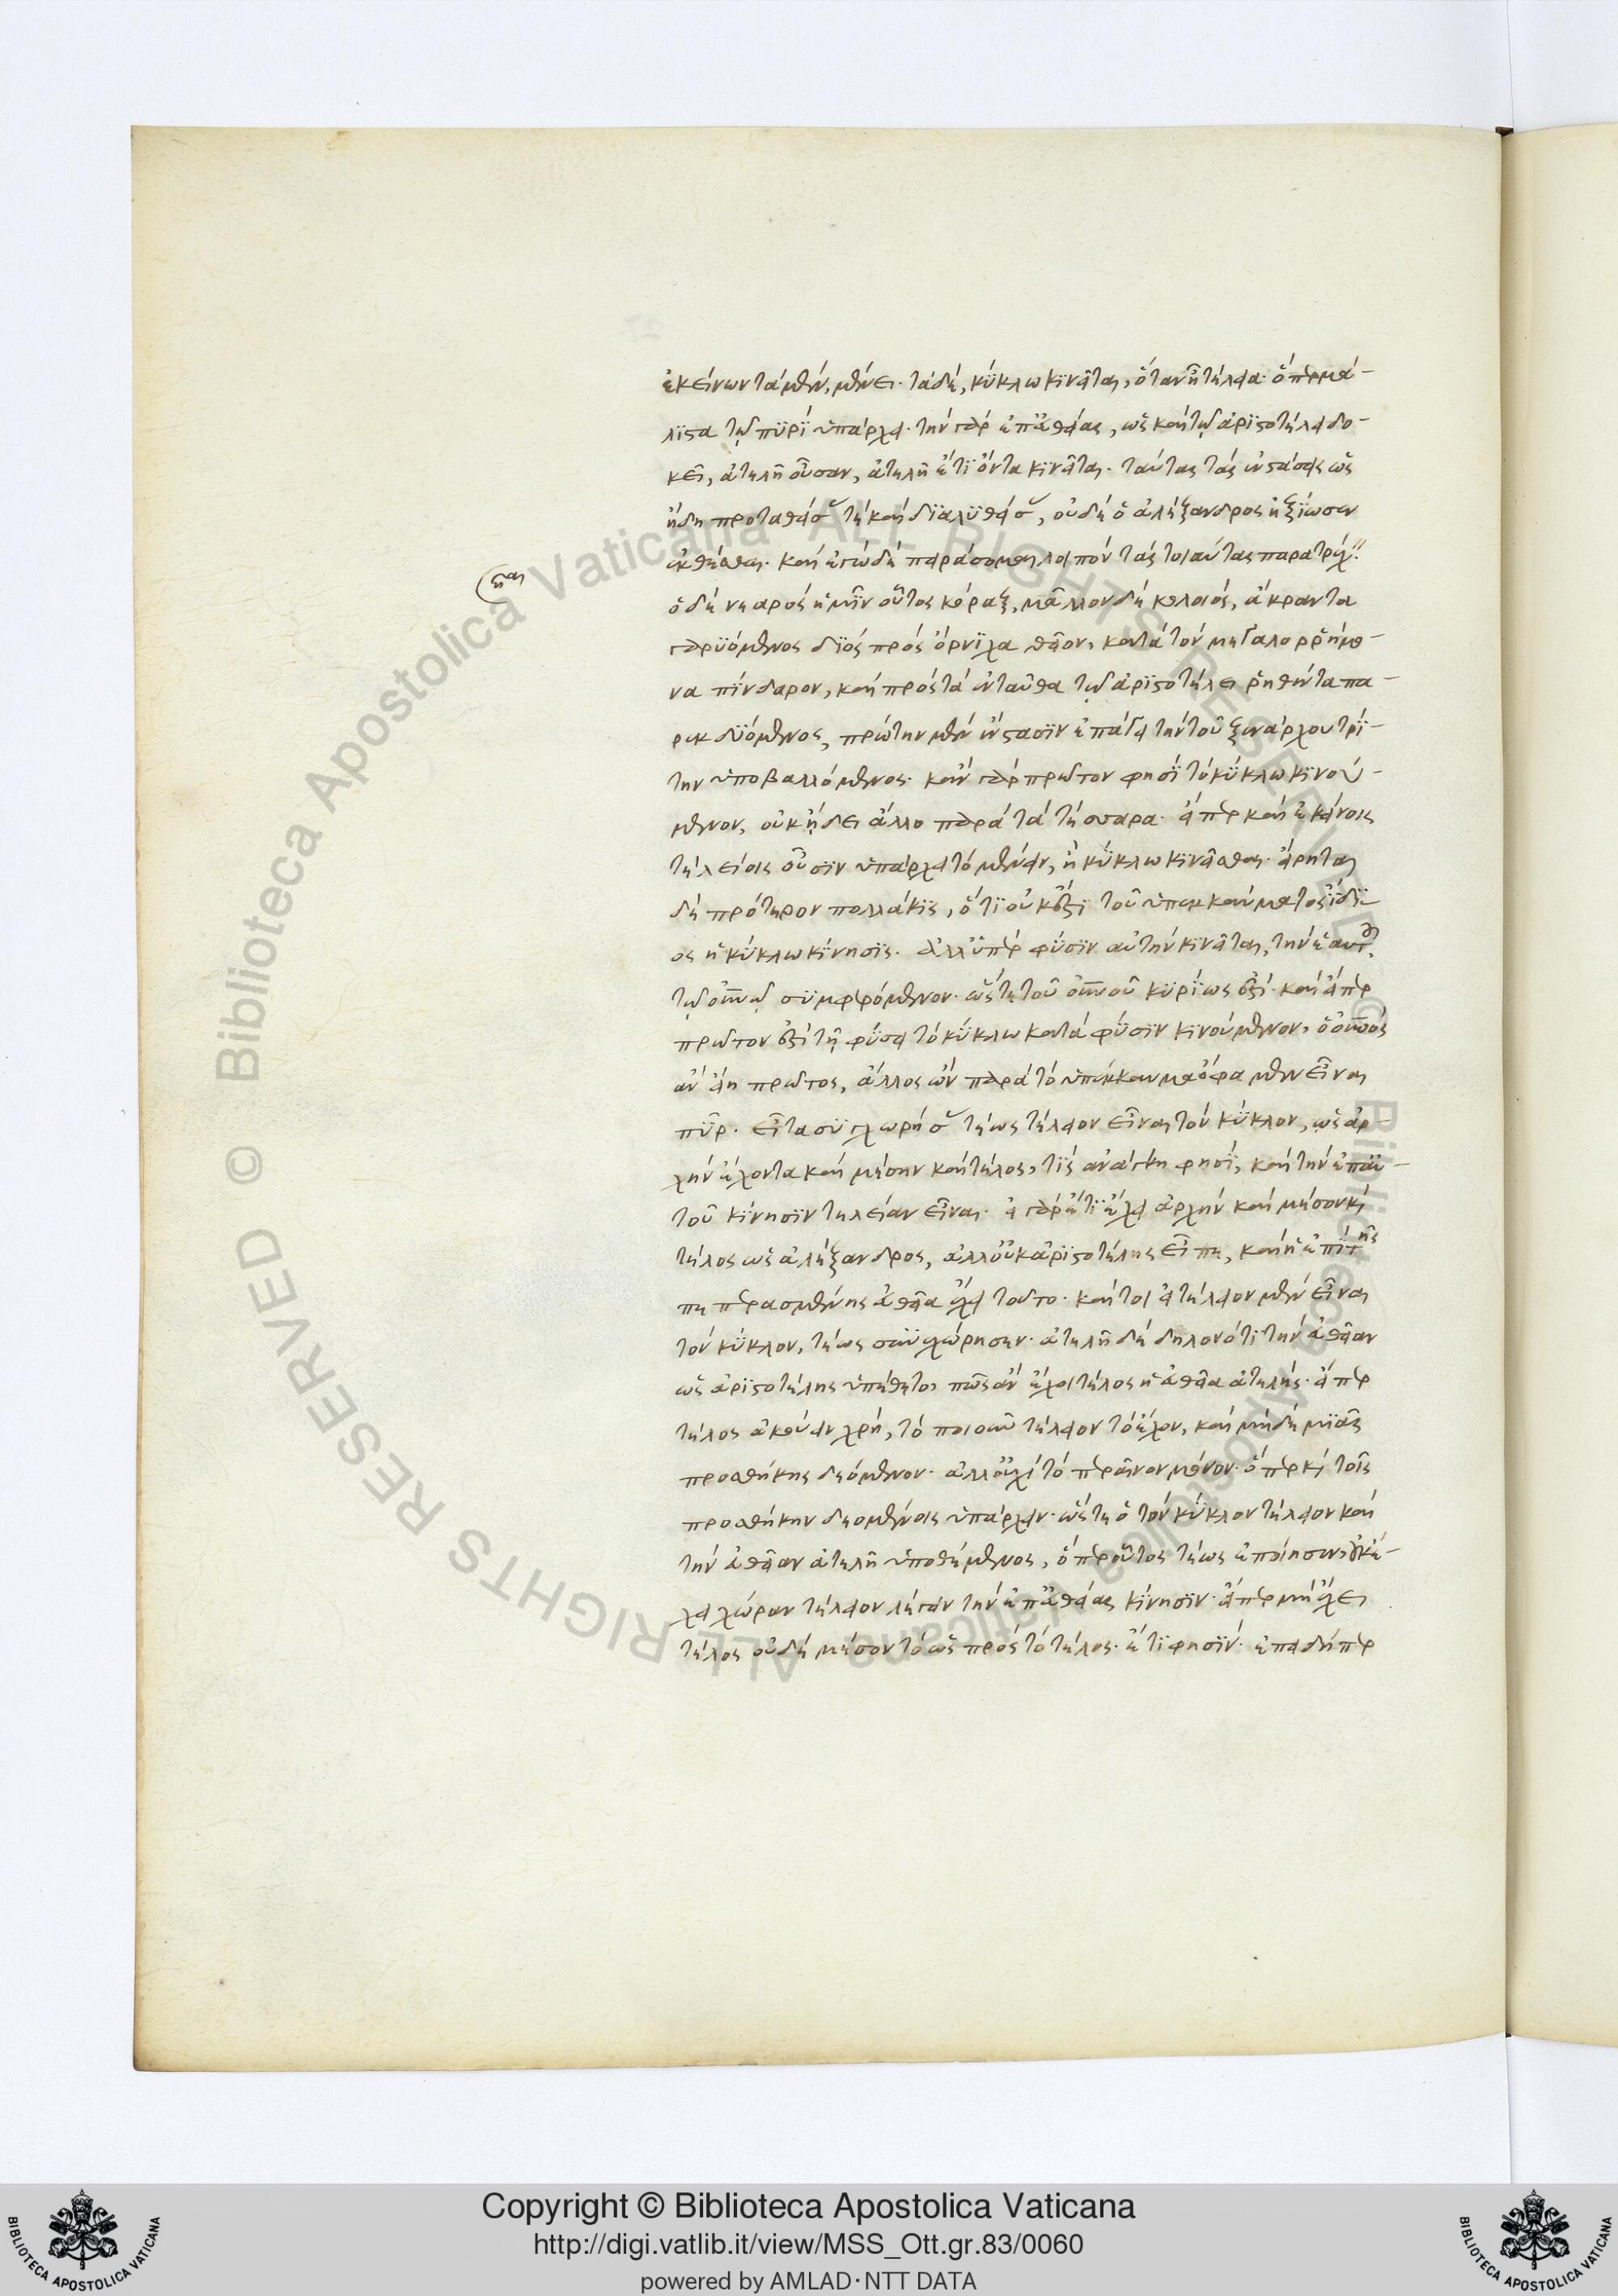 ἐκείνων τὰ μὲν, μένει. τὰ δὲ, κύκλω κινεῖται, ὅταν ἦ τέλεια. ὅπερ μά-
λιστα τῶ πυρὶ ὑπάρχει. τὴν γὰρ ἐπ' εὐθείας, ὡς καὶ τῶ ἀριστοτέλει δο-
κεῖ, ἀτελῆ οὖσαν, ἀτελῆ ἔτι ὄντα κινεῖται. ταύτας τὰς ἐνστάσεις ὡς
ἤδη προταθείσας τὲ καὶ διαλυθείσας, οὐδὲ ὁ ἀλέξανδρος ἠξίωσεν
ἐκθέσθαι. καὶ ἐγὼ δὲ πειράσομαι λοιπὸν τὰς τοιαύτας παρατρέχειν
ὁ δὲ νεαρὸς ἡμῖν οὗτος κόραξ, μᾶλλον δὲ κολοιὸς, ἄκραντα
γαρυόμενος διὸς πρὸς ὄρνιχα θεῖον, κατὰ τὸν μεγαλορρήμο-
να πίνδαρον, καὶ πρὸς τὰ ἐνταῦθα τῶ ἀριστοτέλει ῥηθέντα πα-
ρεκδυόμενος, πρώτην μὲν ἔνστασιν ἐπάγει τὴν τοῦ ξενάρχου τρί-
την ὑποβαλλόμενος. κἂν γὰρ πρῶτον φησὶ τὸ κύκλω κινού-
μενον, οὐκ ἤδει ἄλλο παρὰ τὰ τέσσαρα. εἴπερ καὶ ἐκείνοις
τελείοις οὖσιν ὑπάρχει τὸ μένειν, ἢ κύκλω κινεῖσθαι. εἴρηται
δὲ πρότερον πολλάκις, ὅτι οὐκ ἔστι τοῦ ὑπεκκαύματος ἴδι-
ος ἡ κύκλω κίνησις. ἀλλ' ὑπὲρ φύσιν αὐτὴν κινεῖται, τὴν ἑαυτοῦ
τῶ οὐνῶ συμφερόμενον. ὥστε τοῦ οὐνοῦ κυρίως ἐστί. καὶ εἴπερ
πρῶτον ἐστὶ τῆ φύσει τὸ κύκλω κατὰ φύσιν κινούμενον, ὁ οὐνὸς
ἂν εἴη πρῶτος, ἄλλος ὢν παρὰ τὸ ὑπέκκαυμα ὅ φαμὲν εἶναι
πῦρ. εἶτα συγχωρήσας τέως τέλειον εἶναι τὸν κύκλον, ὡς ἀρ-
χὴν ἔχοντα καὶ μέσην καὶ τέλος, τίς ἀνάγκη φησὶ, καὶ τὴν ἐπ' αὐ-
τοῦ κίνησιν τελείαν εἶναι. εἰ γὰρ ἔτι ἔχει ἀρχὴν καὶ μέσον καὶ
τέλος ὡς ἀλέξανδρος, ἀλλ' οὐκ ἀριστοτέλης εἶπε, καὶ ἡ ἐπὶ τῆς
πεπερασμένης εὐθεῖα ἔχει τοῦτο. καί τοι εἰ τέλειον μὲν εἶναι
τὸν κύκλον, τέως συνεχώρησεν. ἀτελῆ δὲ δηλονότι τὴν εὐθεῖαν
ὡς ἀριστοτέλης ὑπέθετο, πῶς ἂν ἔχοι τέλος ἡ εὐθεῖα ἀτελής. εἴπερ
τέλος ἀκούειν χρὴ, τὸ ποιοῦν τέλειον τὸ ἔχον, καὶ μηδὲ μιᾶς
προσθήκης δεόμενον. ἀλλ' οὐχὶ τὸ περαῖνον μόνον. ὅπερ καὶ τοῖς
προσθήκην δεομένοις ὑπάρχειν. ὥστε ὁ τὸν κύκλον τέλειον καὶ
τὴν εὐθεῖαν ἀτελῆ ὑποθέμενος, ὅπερ οὗτος τέως ἐποίησεν, οὐκ ἔ-
χει χώραν τέλειον λέγειν τὴν ἐπ' εὐθείας κίνησιν. εἴπερ μὴ ἔχει
τέλος οὐδὲ μέσον τὸ ὡς πρὸς τὸ τέλος. ἔτι φησίν. ἐπειδήπερ
Copyright © Biblioteca Apostolica Vaticana
http://digi.vatlib.it/view/MSS_Ott.gr.83/0060
powered by AMLAD·NTT DATA